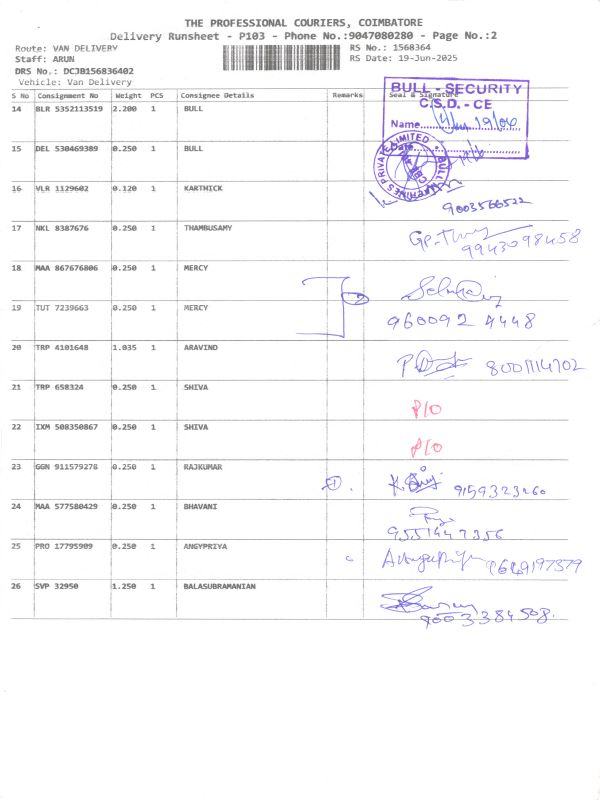 THE PROFESSIONAL COURIERS, COIMBATORE
Delivery Runsheet - P103 - Phone No.:9047080280 - Page No.:2
Route: VAN DELIVERY RS No.: 1568364
Staff: ARUN RS Date: 19-Jun-2025
DRS No.: DCJB156836402
Vehicle: Van Delivery
S No Consignment No Weight PCS Consignee Details Remarks Seal & Signature
BULL - SECURITY
C.S.D. - CE
14 BLR 5352113519 2.200 1 BULL
Name 19/06
Date
15 DEL 530469389 0.250 1 BULL
BULL MACHINES PRIVATE LIMITED
16 VLR 1129602 0.120 1 KARTHICK
9003566522
17 NKL 8387676 0.250 1 THAMBUSAMY
9943098458
18 MAA 867676806 0.250 1 MERCY
2
19 TUT 7239663 0.250 1 MERCY
960092 4448
20 TRP 4101648 1.035 1 ARAVIND
8001114702
21 TRP 658324 0.250 1 SHIVA
P/O
22 IXM 508350867 0.250 1 SHIVA
P/O
23 GGN 911579278 0.250 1 RAJKUMAR
9159323260
24 MAA 577580429 0.250 1 BHAVANI
9551447356
25 PRO 17795909 0.250 1 ANGYPRIYA
26 SVP 32950 1.250 1 BALASUBRAMANIAN
9003384508.